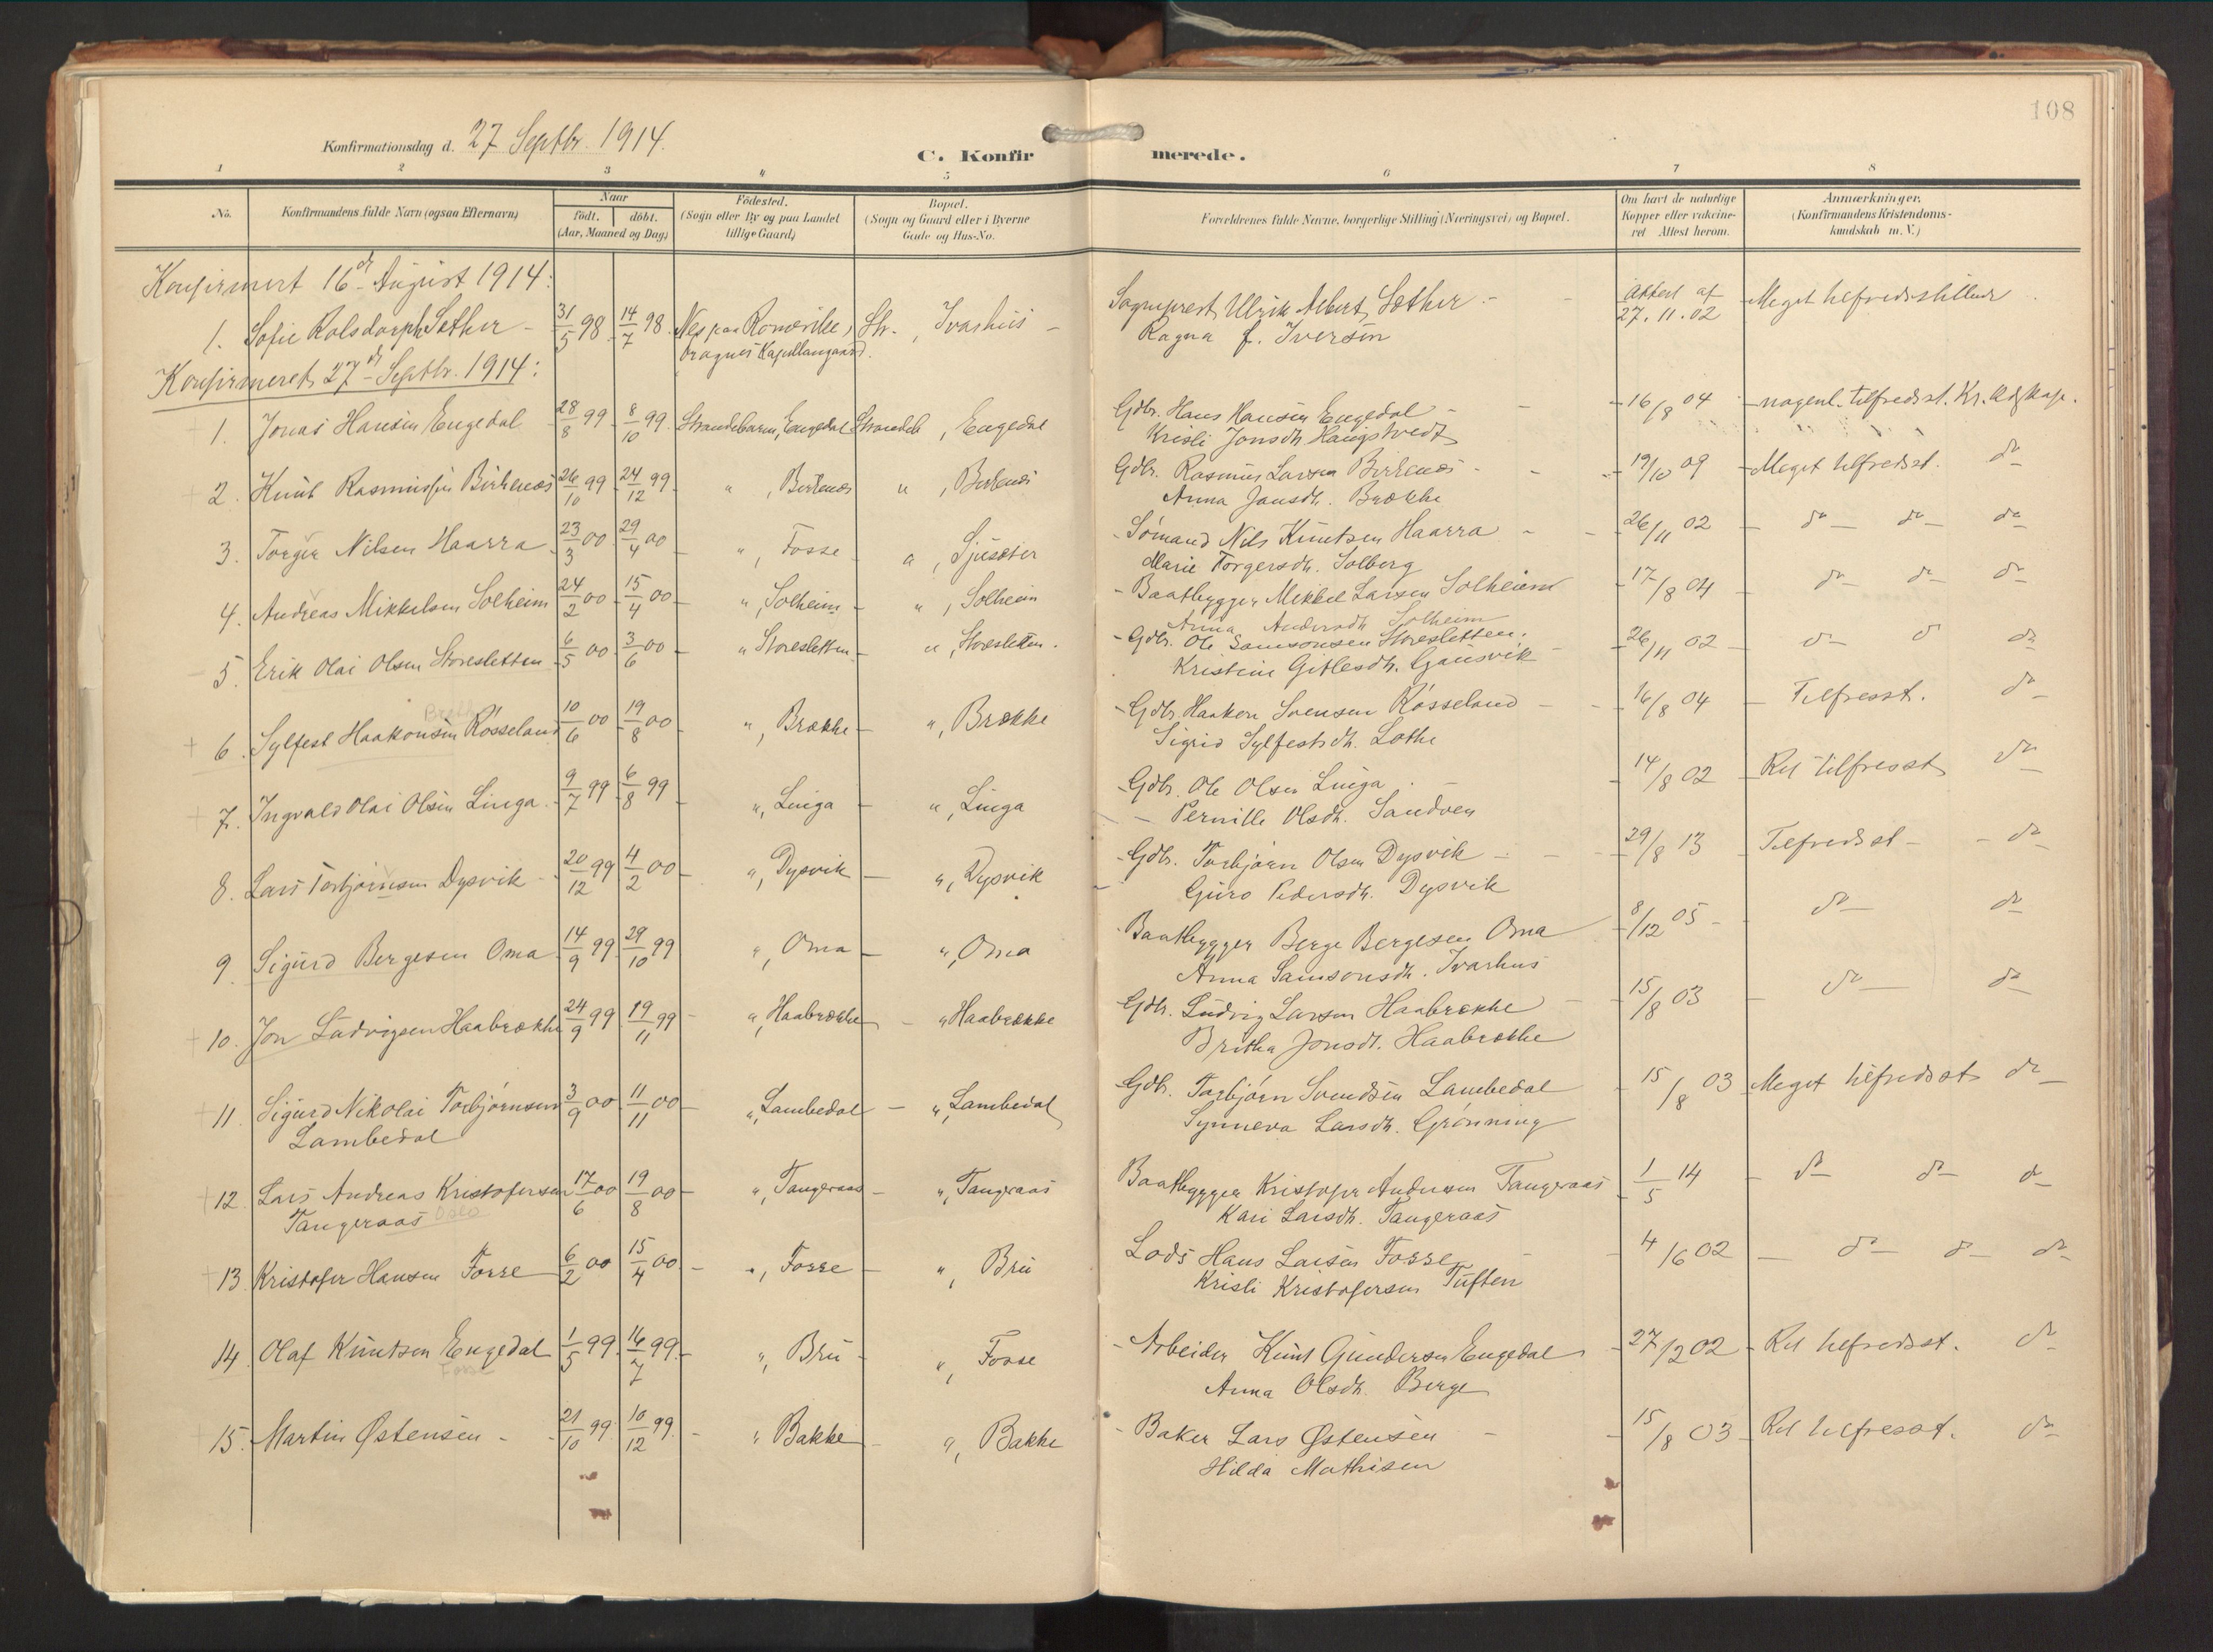 108
Konfirmationsdag d. 27 Septbr. 1914.
C. Konfirmerede.
1 2 3 4 5 6 7 8
No.
Konfirmandens fulde Navn (ogsaa Efternavn)
Naar
födt. döbt.
(Aar, Maaned og Dag)
Födested.
(Sogn eller By og paa Landet
tillige Gaard)
Bopæl.
(Sogn og Gaard eller i Byerne
Gade og Hus-No.
Forældrenes fulde Navne, borgerlige Stilling (Næringsvei) og Bopæl.
Om havt de naturlige
Kopper eller vakcine-
ret Attest herom.
Anmærkninger.
(Konfirmandens Kristendoms-
kundskab m. V.)
Konfirmert 16de August 1914:
1. Sofie Rolsdorph Sæther - 31/5 98 14/7 98. Nes paa Romerike, Str. , Ivarhus - Sogneprest Ulrik Albert Sæther - Attest af Meget tilfredsstillende
Kapellangaard. Ragna f. Iversen 27.11.02
Konfirmeret 27de Septbr. 1914:
1. Jonas Hansen Engedal 28/8 99 8/10 99 Strandebarm, Engedal Strandeb , Engedal Gdbr. Hans Hansen Engedal - 16/8 04 nogenl. tilfredsst. Kr.
Kristi Jonsdh. Haugstvedt
2. Knut Rasmussen Birkenes 26/10 99 24/12 99 " , Birkenes " , Birkenes Gdbr. Rasmus Larsen Birkenes - 19/10 09 Meget tilfredsst. do
Anna Jansdh. Brække
3. Torger Nilsen Haarra 23/3 00 29/4 00 " , Fosse " , Sjusæter Sømand Nils Knutsen Haarra - 26/11 02 do do do
Marie Torgersdh. Solberg
4. Andreas Mikkelsen Solheim 24/2 00 15/4 00 " , Solheim " , Solheim Baatbygger Mikkel Larsen Solheim 17/8 04 do do do
Anna Andersdh Solheim
5. Erik Olai Olsen Storesletten 6/5 00 3/6 00 " Storesletten " , Storesletten. Gdbr. Ole Samsonsen Storesletten. 26/11 02 do do do
Kristine Gitlesdh. Gausvik
6. Sylfest Haakonsen Røsseland 10/6 00 19/8 00 " , Brække " , Brække Gdbr. Haakon Svensen Røsseland 16/8 04 Tilfresst. do
Sigrid Sylfestsdh. Lothe
7. Ingvald Olai Olsen Linga 9/7 99 6/8 99 " , Linga " , Linga Gdbr. Ole Olsen Linga 14/8 02 Ret tilfresst do
Pernille Olsdh. Sandven
8. Lars Torbjørnsen Dysvik 20/12 99 4/2 00 " , Dysvik " , Dysvik Gdbr. Torbjørn Olsen Dysvik 29/8 13 Tilfredsst - do
Guro Pedersdh. Dysvik
9. Sigurd Bergesen Oma 14/9 99 29/10 99 " , Oma " , Oma Baatbygger Berge Bergesen Oma 8/12 05 do do
Anna Samsonsdh. Ivarhus
10. Jon Ludvigsen Haabrække 24/9 99 19/11 99 " , Haabrække " Haabrække Gdbr. Ludvig Larsen Haabrække 15/8 03 do do
Britha Jonsdt. Haabrække
11. Sigurd Nikolai Torbjørnsen 3/9 00 11/11 00 " , Lambedal " , Lambedal Gdbr. Torbjørn Svendsen Lambedal 15/8 03 Meget tilfredsst do
Lambedal Synneva Larsdh. Grønning
12. Lars Andreas Kristofersen 17/6 00 19/8 00 " , Tangeraas " , Tangeraas Baatbygger Kristofer Andersen Tangeraas 1/5 14 do do do
Tangeraas Oslo Kari Larsdh. Tangeraas
13. Kristofer Hansen Fosse 6/2 00 15/4 00 " , Fosse " , Bru Lods Hans Larsen Fosse 4/6 02 do do do
Kristi Kristofersen Tuften
14. Olaf Knutsen Engedal 1/5 99 16/7 99 " , Bru " , Fosse Arbeider Knut Gundersen Engedal 27/2 02 Ret tilfredsst. do
Fosse Anna Olsdh. Berge
15. Martin Østensen - 21/10 99 10/12 99 " Bakke " , Bakke Baker Lars Østensen 15/8 03 Ret tilfresst. do
Hilda Mathisen